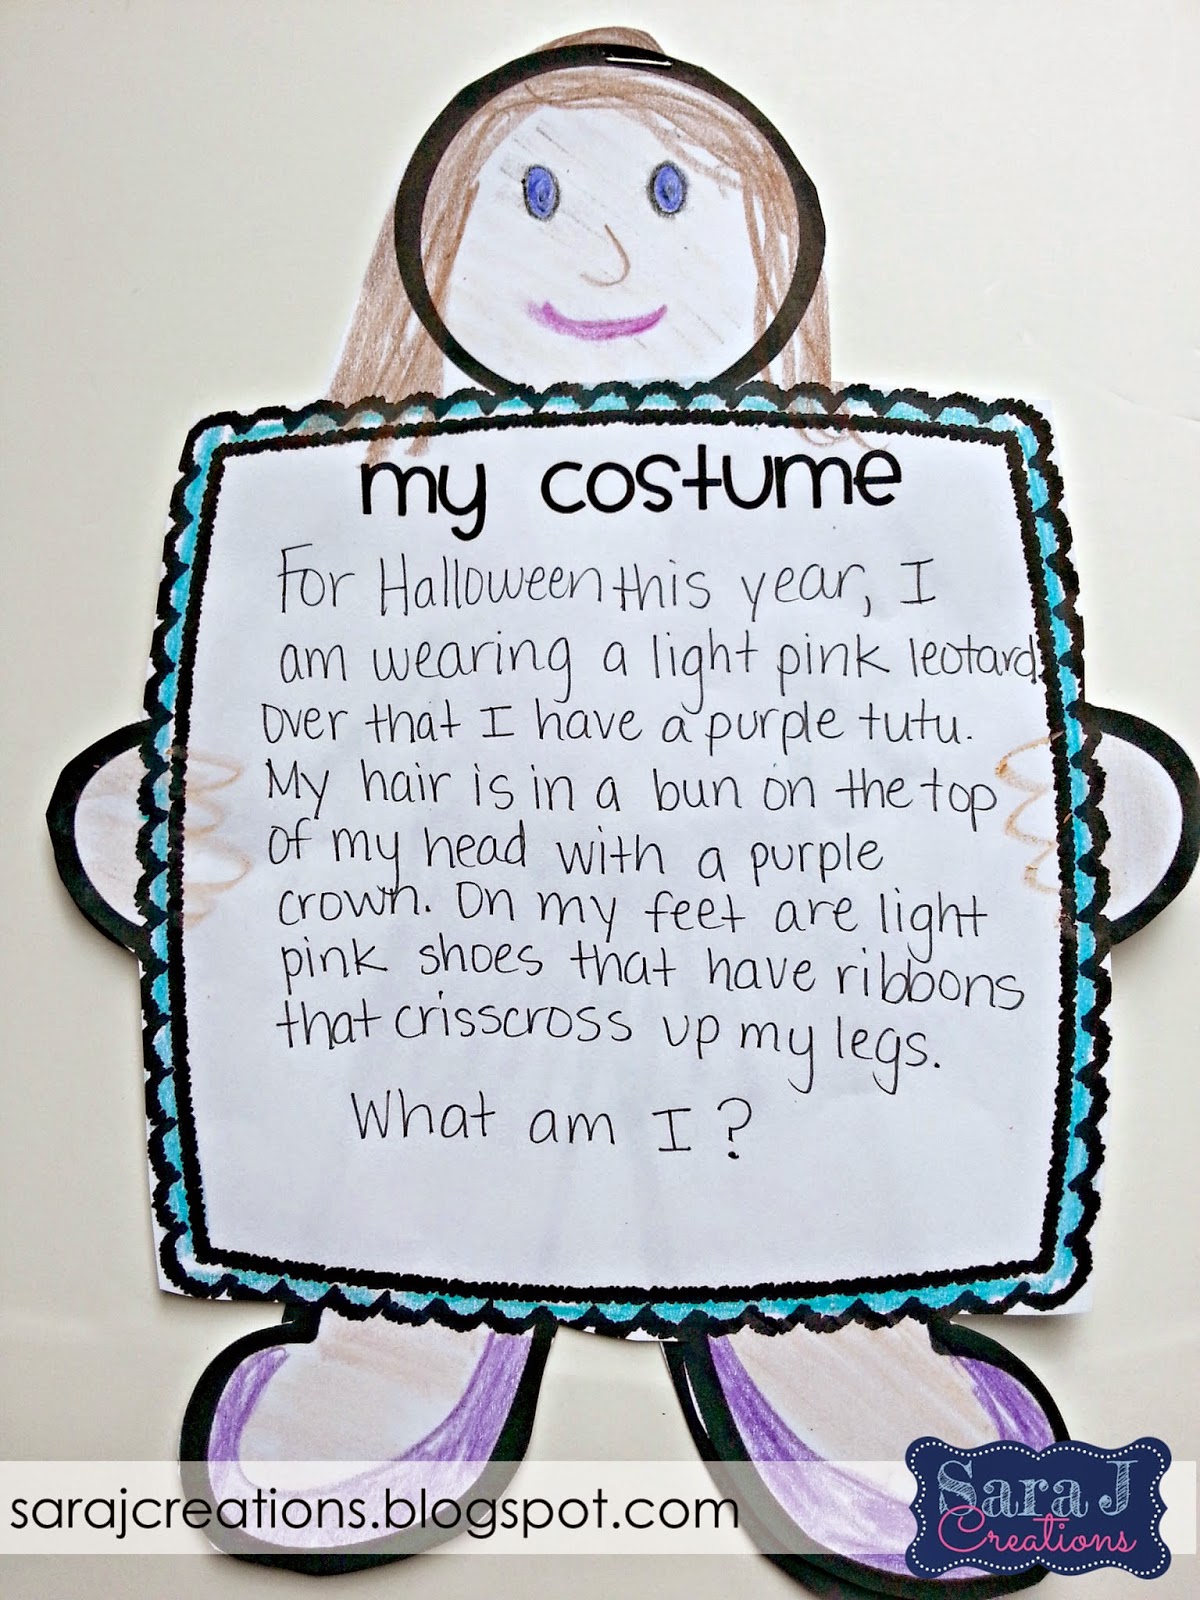 my costume
For Halloween this year, I
am wearing a light pink leotard.
Over that I have a purple tutu.
My hair is in a bun on the top
of my head with a purple
crown. On my feet are light
pink shoes that have ribbons
that crisscross up my legs.
What am I?
sarajcreations.blogspot.com
Sara J
Creations